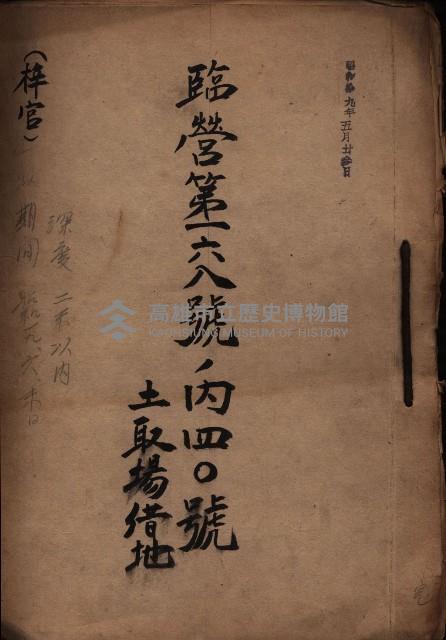 昭和拾九年五月廿三日
臨營第一六八號ノ內四〇號
土取場借地
(梓官)
深度 二米以内
期間 昭一九、六、末日
高雄市立歷史博物館
KAOHSIUNG MUSEUM OF HISTORY